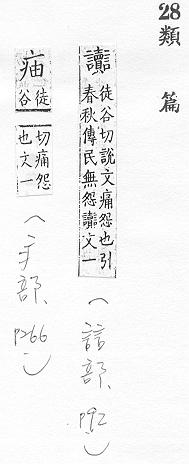 28類篇
讟
徒谷切說文痛怨也引
春秋傳民無怨讟文一
（誩部、P92）
㾄
徒
谷
切痛怨
也文一
（疒部、P266）